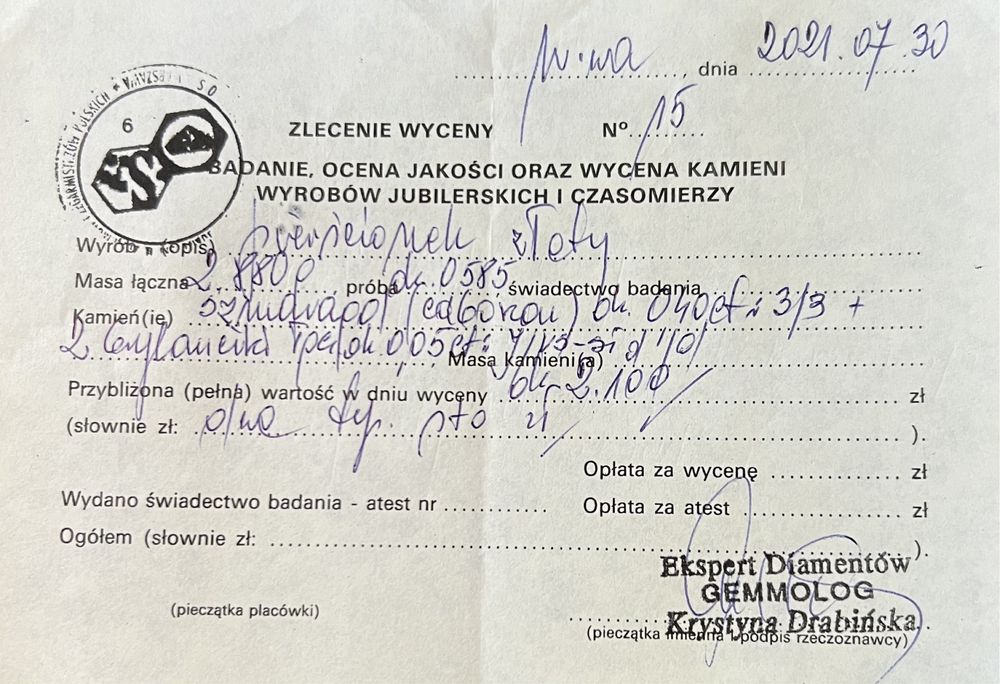 W-wa, dnia 2021.07.30
ZLECENIE WYCENY Nº 15
BADANIE, OCENA JAKOŚCI ORAZ WYCENA KAMIENI
WYROBÓW JUBILERSKICH I CZASOMIERZY
6
Wyrób (opis) pierścionek złoty
Masa łączna 2.880 próba ok. 0585 świadectwo badania
Kamień(ie) szmaragd (cabochon) ok. 040ct; 3/3 +
2 ok. 005ct; Masa kamieni(a)
Przybliżona (pełna) wartość w dniu wyceny ok. 2.100 zł
(słownie zł: dwa tys. sto zł ).
Opłata za wycenę zł
Wydano świadectwo badania - atest nr Opłata za atest zł
Ogółem (słownie zł: ).
Ekspert Diamentów
GEMMOLOG
Krystyna Drabińska
(pieczątka placówki) (pieczątka imienna i podpis rzeczoznawcy)